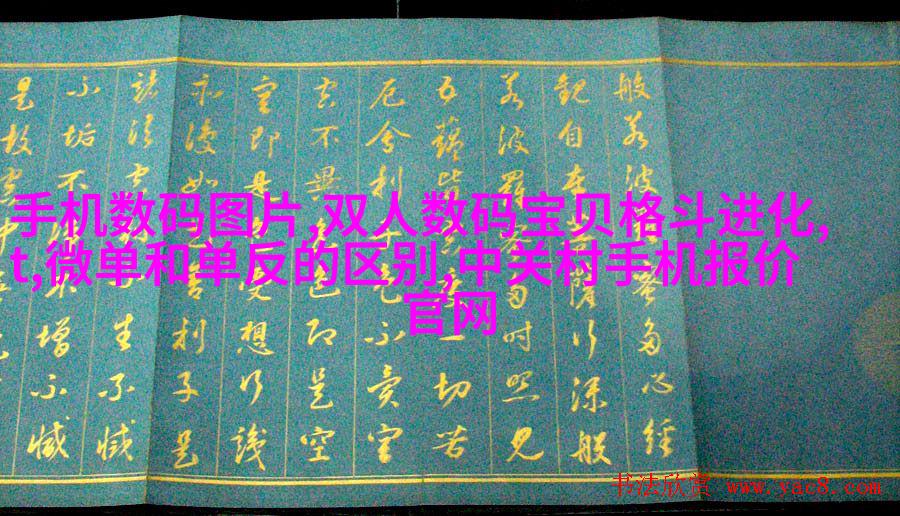 手机数码图片,双人数码宝贝格斗进化,
t,微单和单反的区别,中关村手机报价
官网
般若波蜜多心經
觀自在薩行深般
若波羅蜜多時照見
五蘊皆空度一切苦
厄舍利色不異空
空不異色即是空
空即是受想行識
亦復如是舍利子是
諸法空生不滅
不垢不不增不減
是故空中
书法欣赏 www.yac8.com